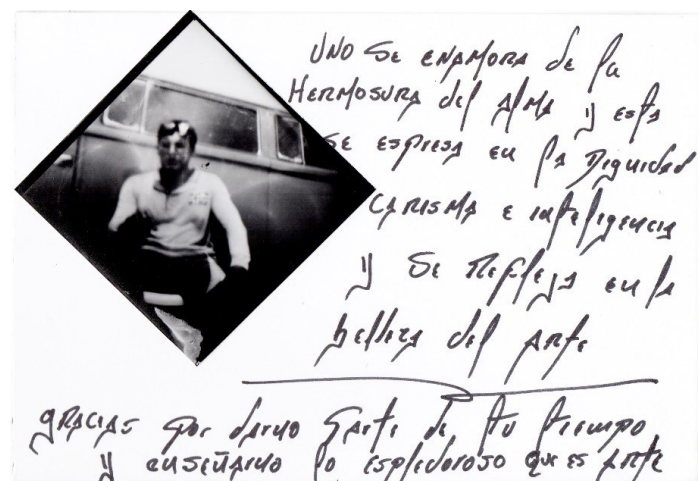 UNO SE ENAMORA de la
HERMOSURA del AlMA y esta
SE espresa en la Dignidad
CARISMA e inteligencia
y Se Refleja en la
belleza del Arte
gRACIAS por darno parte de tu tiempo
y enseñarno lo esplendoroso que es Arte